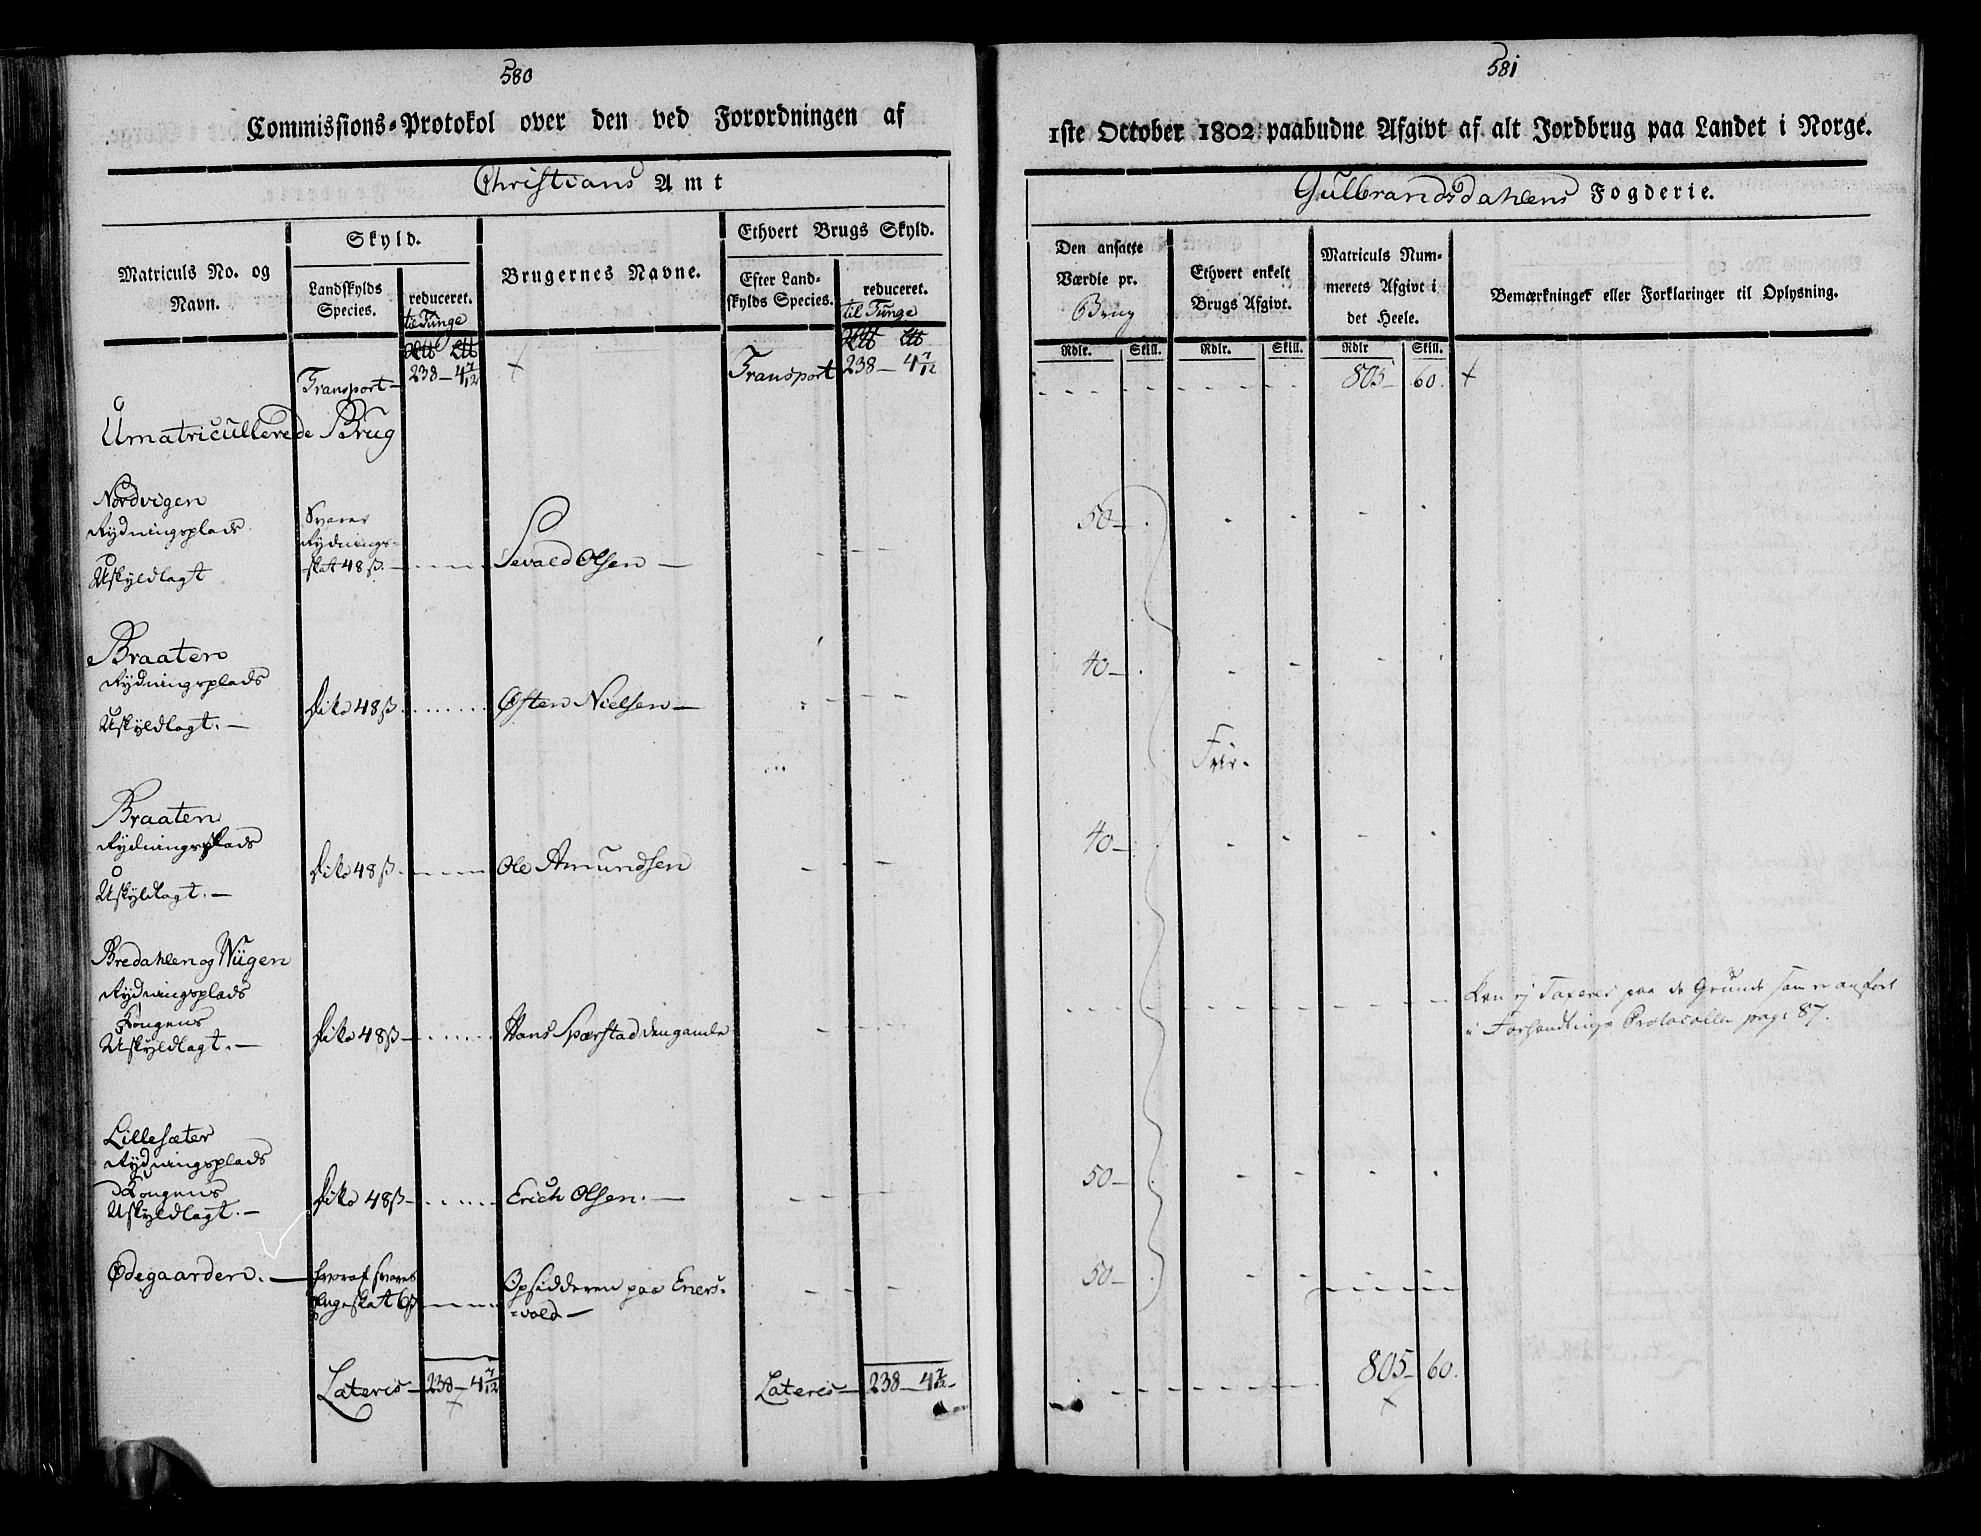 580
Commissions-Protokol over den ved Forordningen af
Christians Amt
Matriculs No. og
Navn.
Skyld.
Landskylds
Species.
reduceret.
til Tunge
Brugernes Navne.
Ethvert Brugs Skyld.
Efter Land-
skylds Species.
reduceret.
til Tunge
Transport - 238 - 4 7/12 Transport 238 - 4 7/12
Umatricullerede Brug
Nordvigen
Rydningsplads
Uskyldlagt
Svarer
Rydnings-
skat 48 ß. Sevald Olsen -
Braaten
Rydningsplads
Uskyldlagt. -
Dito 48 ß Østen Nielsen -
Braaten
Rydningsplads
Uskyldlagt. -
Dito 48 ß Ole Amundsen
Bredahlen og Wiigen
Rydningsplads
Kongens
Uskyldlagt. -
Dito 48 ß - Hans Spærstad den gamle
Lillesæter
Rydningsplads
Kongens
Uskyldlagt. -
Dito 48 ß - Erich Olsen. -
Ødegaarden. - hvoraf svares
skat 6 ß Opsidderen paa Eners-
-vold -
Lateris - 238 - 4 7/12 Lateris - 238 - 4 7/12 -
581
1ste October 1802 paabudne Afgivt af alt Jordbrug paa Landet i Norge.
Gulbrandsdahlens Fogderie.
Den ansatte
Værdie pr.
Brug
Ethvert enkelt
Brugs Afgivt.
Matriculs Num-
merets Afgivt i
det Heele.
Bemærkninger eller Forklaringer til Oplysning.
Rdlr. Skill. Rdlr. Skill. Rdlr Skill.
805 - 60.
50 -
40 -
Frie.
40 -
Kan ej Taxeres paa de Grunde som er anført
i Forhandlings Protocollen pag: 87.
50 -
50 -
805 - 60.